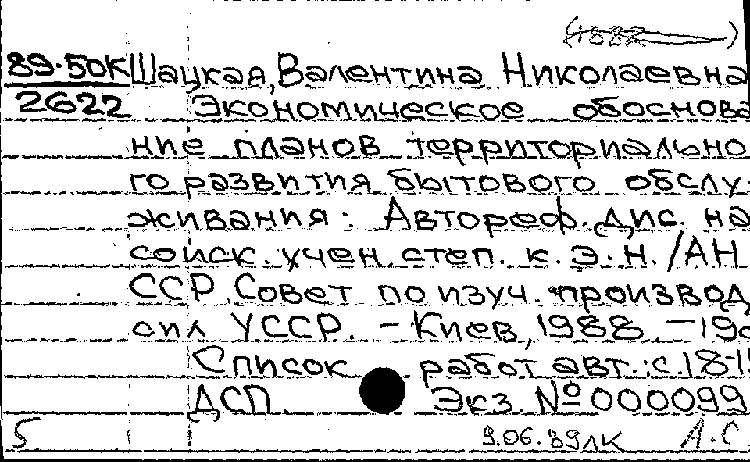 89-50К Шацкая, Валентина Николаевна
2622 Экономическое обоснова
ние планов территориально
го развития бытового обслу-
живания: Автореф. дис. на
соиск. учен. степ. к. э. н. /АН
ССР. Совет по изуч. производ.
сил УССР. - Киев, 1988. - 19с
Список работ авт.: с. 18-1
ДСП. Экз. № 000099
5 9.06.89лк А.С